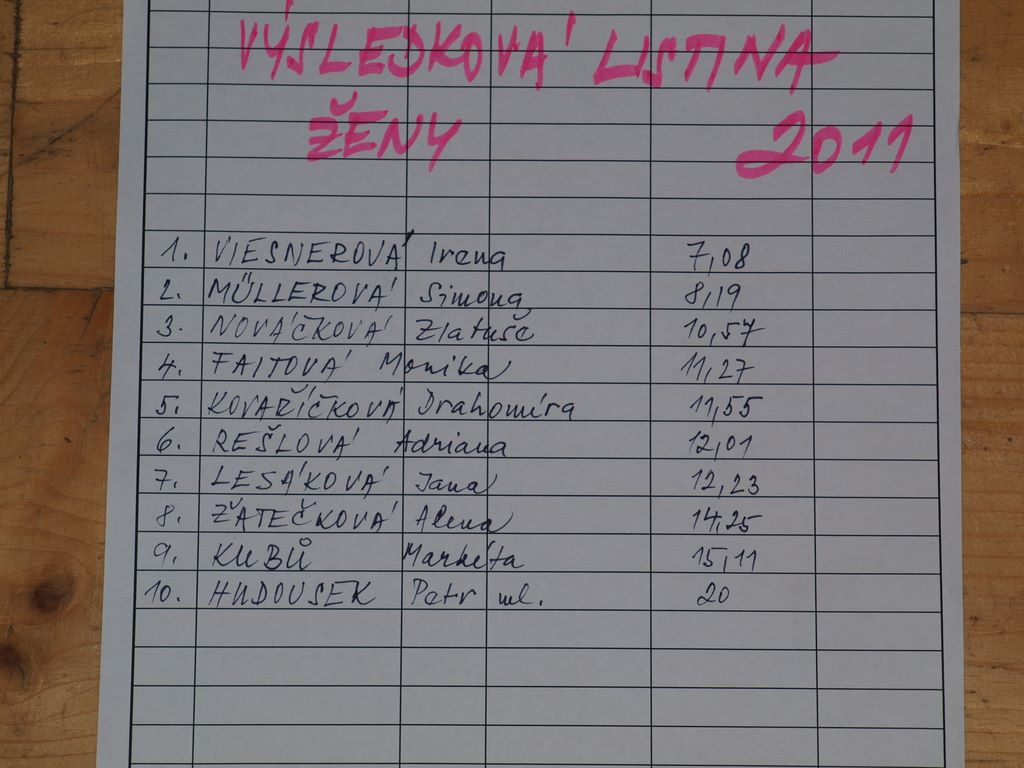 VÝSLEDKOVÁ LISTINA
ŽENY 2011
1. VIESNEROVÁ Irena 7,08
2. MÜLLEROVÁ Simona 8,19
3. NOVÁČKOVÁ Zlatuše 10,57
4. FAITOVÁ Monika 11,27
5. KOVAŘÍČKOVÁ Drahomíra 11,55
6. REŠLOVÁ Adriana 12,01
7. LESÁKOVÁ Jana 12,23
8. ŽATEČKOVÁ Alena 14,25
9. KUBŮ Markéta 15,11
10. HUDOUSEK Petr ml. 20